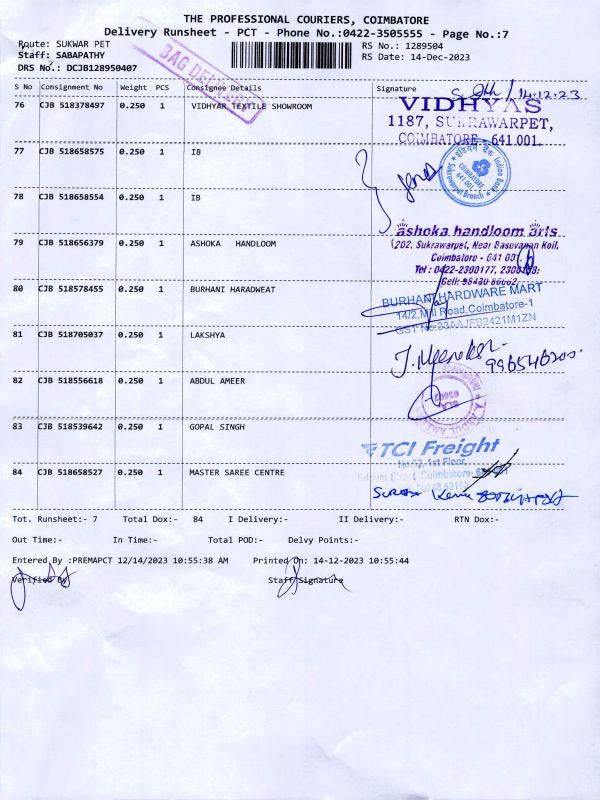 THE PROFESSIONAL COURIERS, COIMBATORE
Delivery Runsheet - PCT - Phone No.:0422-3505555 - Page No.:7
Route: SUKWAR PET
RS No.: 1289504
Staff: SABAPATHY
RS Date: 14-Dec-2023
DRS No.: DCJB128950407
BAG DELIVERY
S No Consignment No Weight PCS Consignee Details Signature
14.12.23
76 CJB 518378497 0.250 1 VIDHYAR TEXTILE SHOWROOM
VIDHYAS
1187, SUKRAWARPET,
COIMBATORE - 641 001.
77 CJB 518658575 0.250 1 IB
इंडियन बैंक Indian Bank
COIMBATORE
641 001
Sukrawarpet Branch
78 CJB 518658554 0.250 1 IB
79 CJB 518656379 0.250 1 ASHOKA HANDLOOM
ashoka handloom arts
202, Sukrawarpet, Near Basuvanan Koil,
Coimbatore - 641 001.
Tel : 0422-2300177,
Cell:
80 CJB 518578455 0.250 1 BURHANI HARADWEAT
BURHANI HARDWARE MART
14/2, Mill Road, Coimbatore-1
GST No:33AAJFB2421M1ZN
81 CJB 518705037 0.250 1 LAKSHYA
82 CJB 518556618 0.250 1 ABDUL AMEER
83 CJB 518539642 0.250 1 GOPAL SINGH
TCI Freight
1st Floor,
Street, Coimbatore-
84 CJB 518658527 0.250 1 MASTER SAREE CENTRE
Tot. Runsheet:- 7 Total Dox:- 84 I Delivery:- II Delivery:- RTN Dox:-
Out Time:- In Time:- Total POD:- Delvy Points:-
Entered By :PREMAPCT 12/14/2023 10:55:38 AM Printed On: 14-12-2023 10:55:44
Verified By Staff Signature